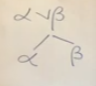 α ∨ β
α β